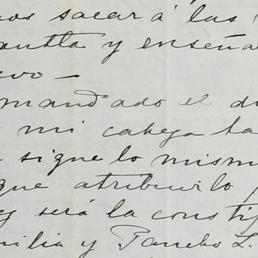 nos sacar á las
y enseña
evo —
mandado el d
mi cabeza ta
sigue lo mism
que atribuirlo
será la consti
ilia y Pancho L.